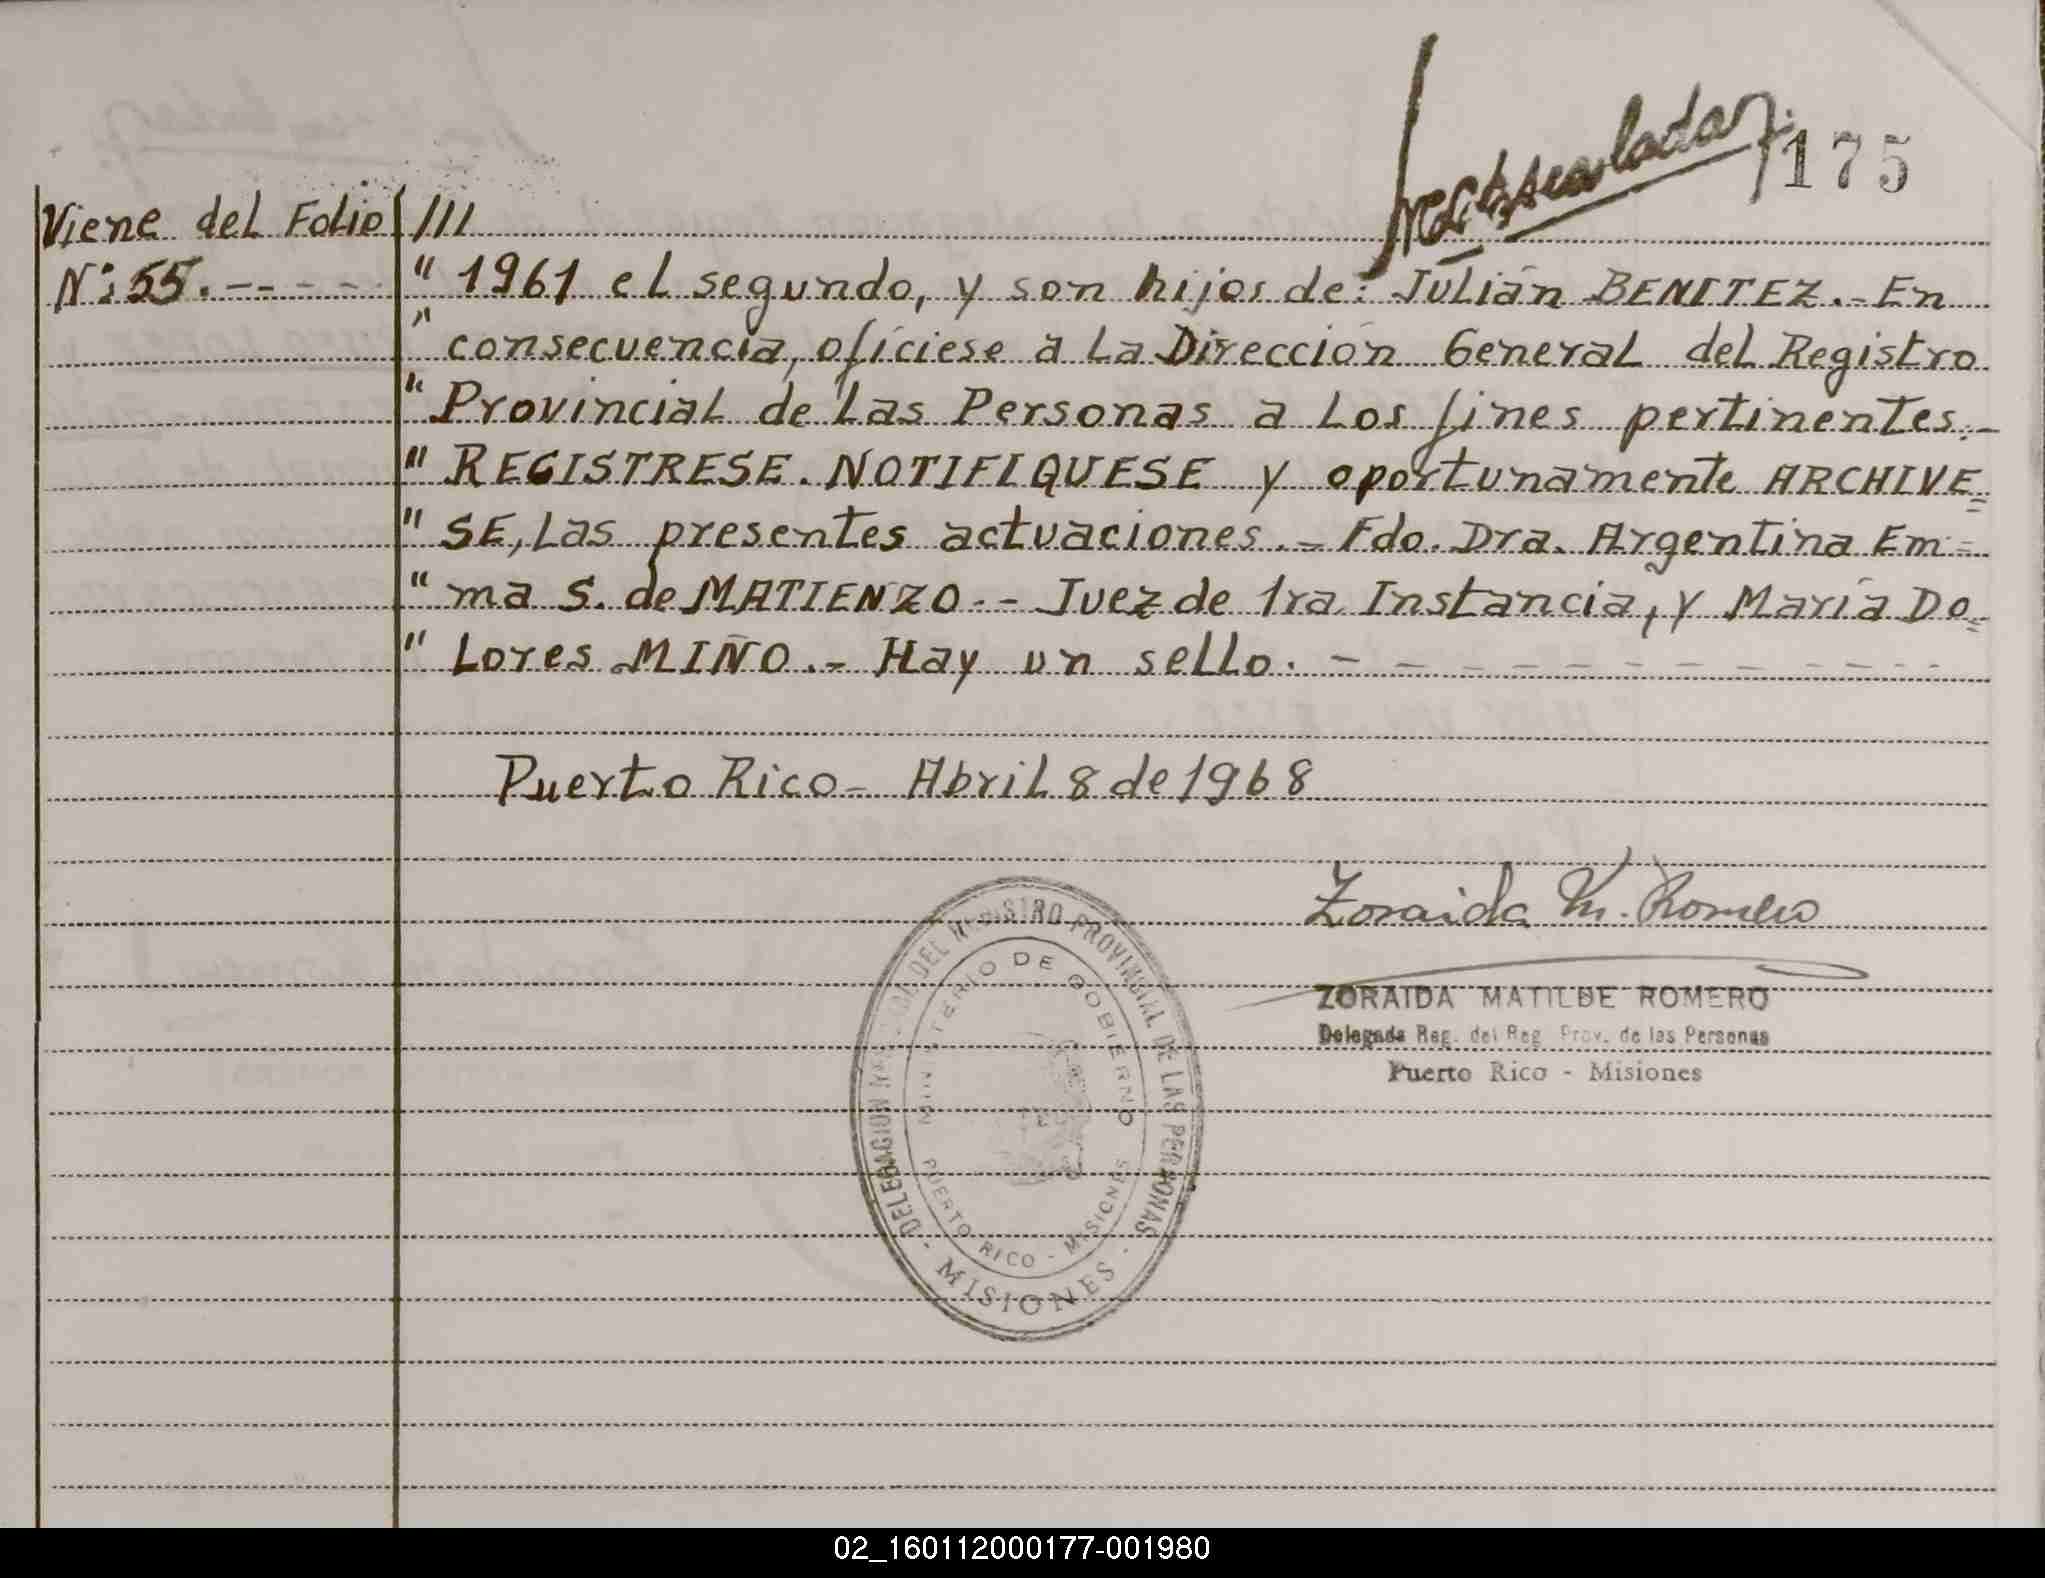 175
Viene del Folio ///
Nº: 55. - - - - -
" 1961 el segundo, y son hijos de: Julián BENITEZ.- En
" consecuencia, ofíciese a la Dirección General del Registro
" Provincial de las Personas a los fines pertinentes.-
" REGISTRESE. NOTIFIQUESE y oportunamente ARCHIVE=
" SE, las presentes actuaciones.- Fdo. Dra. Argentina Em=
" ma S. de MATIENZO.- Juez de 1ra. Instancia, y María Do=
" lores MIÑO.- Hay un sello. - - - - - - - - - - - -
Puerto Rico - Abril 8 de 1968
Zoraida M. Romero
ZORAIDA MATILDE ROMERO
Delegada Reg. del Reg. Prov. de las Personas
Puerto Rico - Misiones
DELEGACION REGIONAL DEL REGISTRO PROVINCIAL DE LAS PERSONAS
- MISIONES -
MINISTERIO DE GOBIERNO
PUERTO RICO - MISIONES
02_160112000177-001980